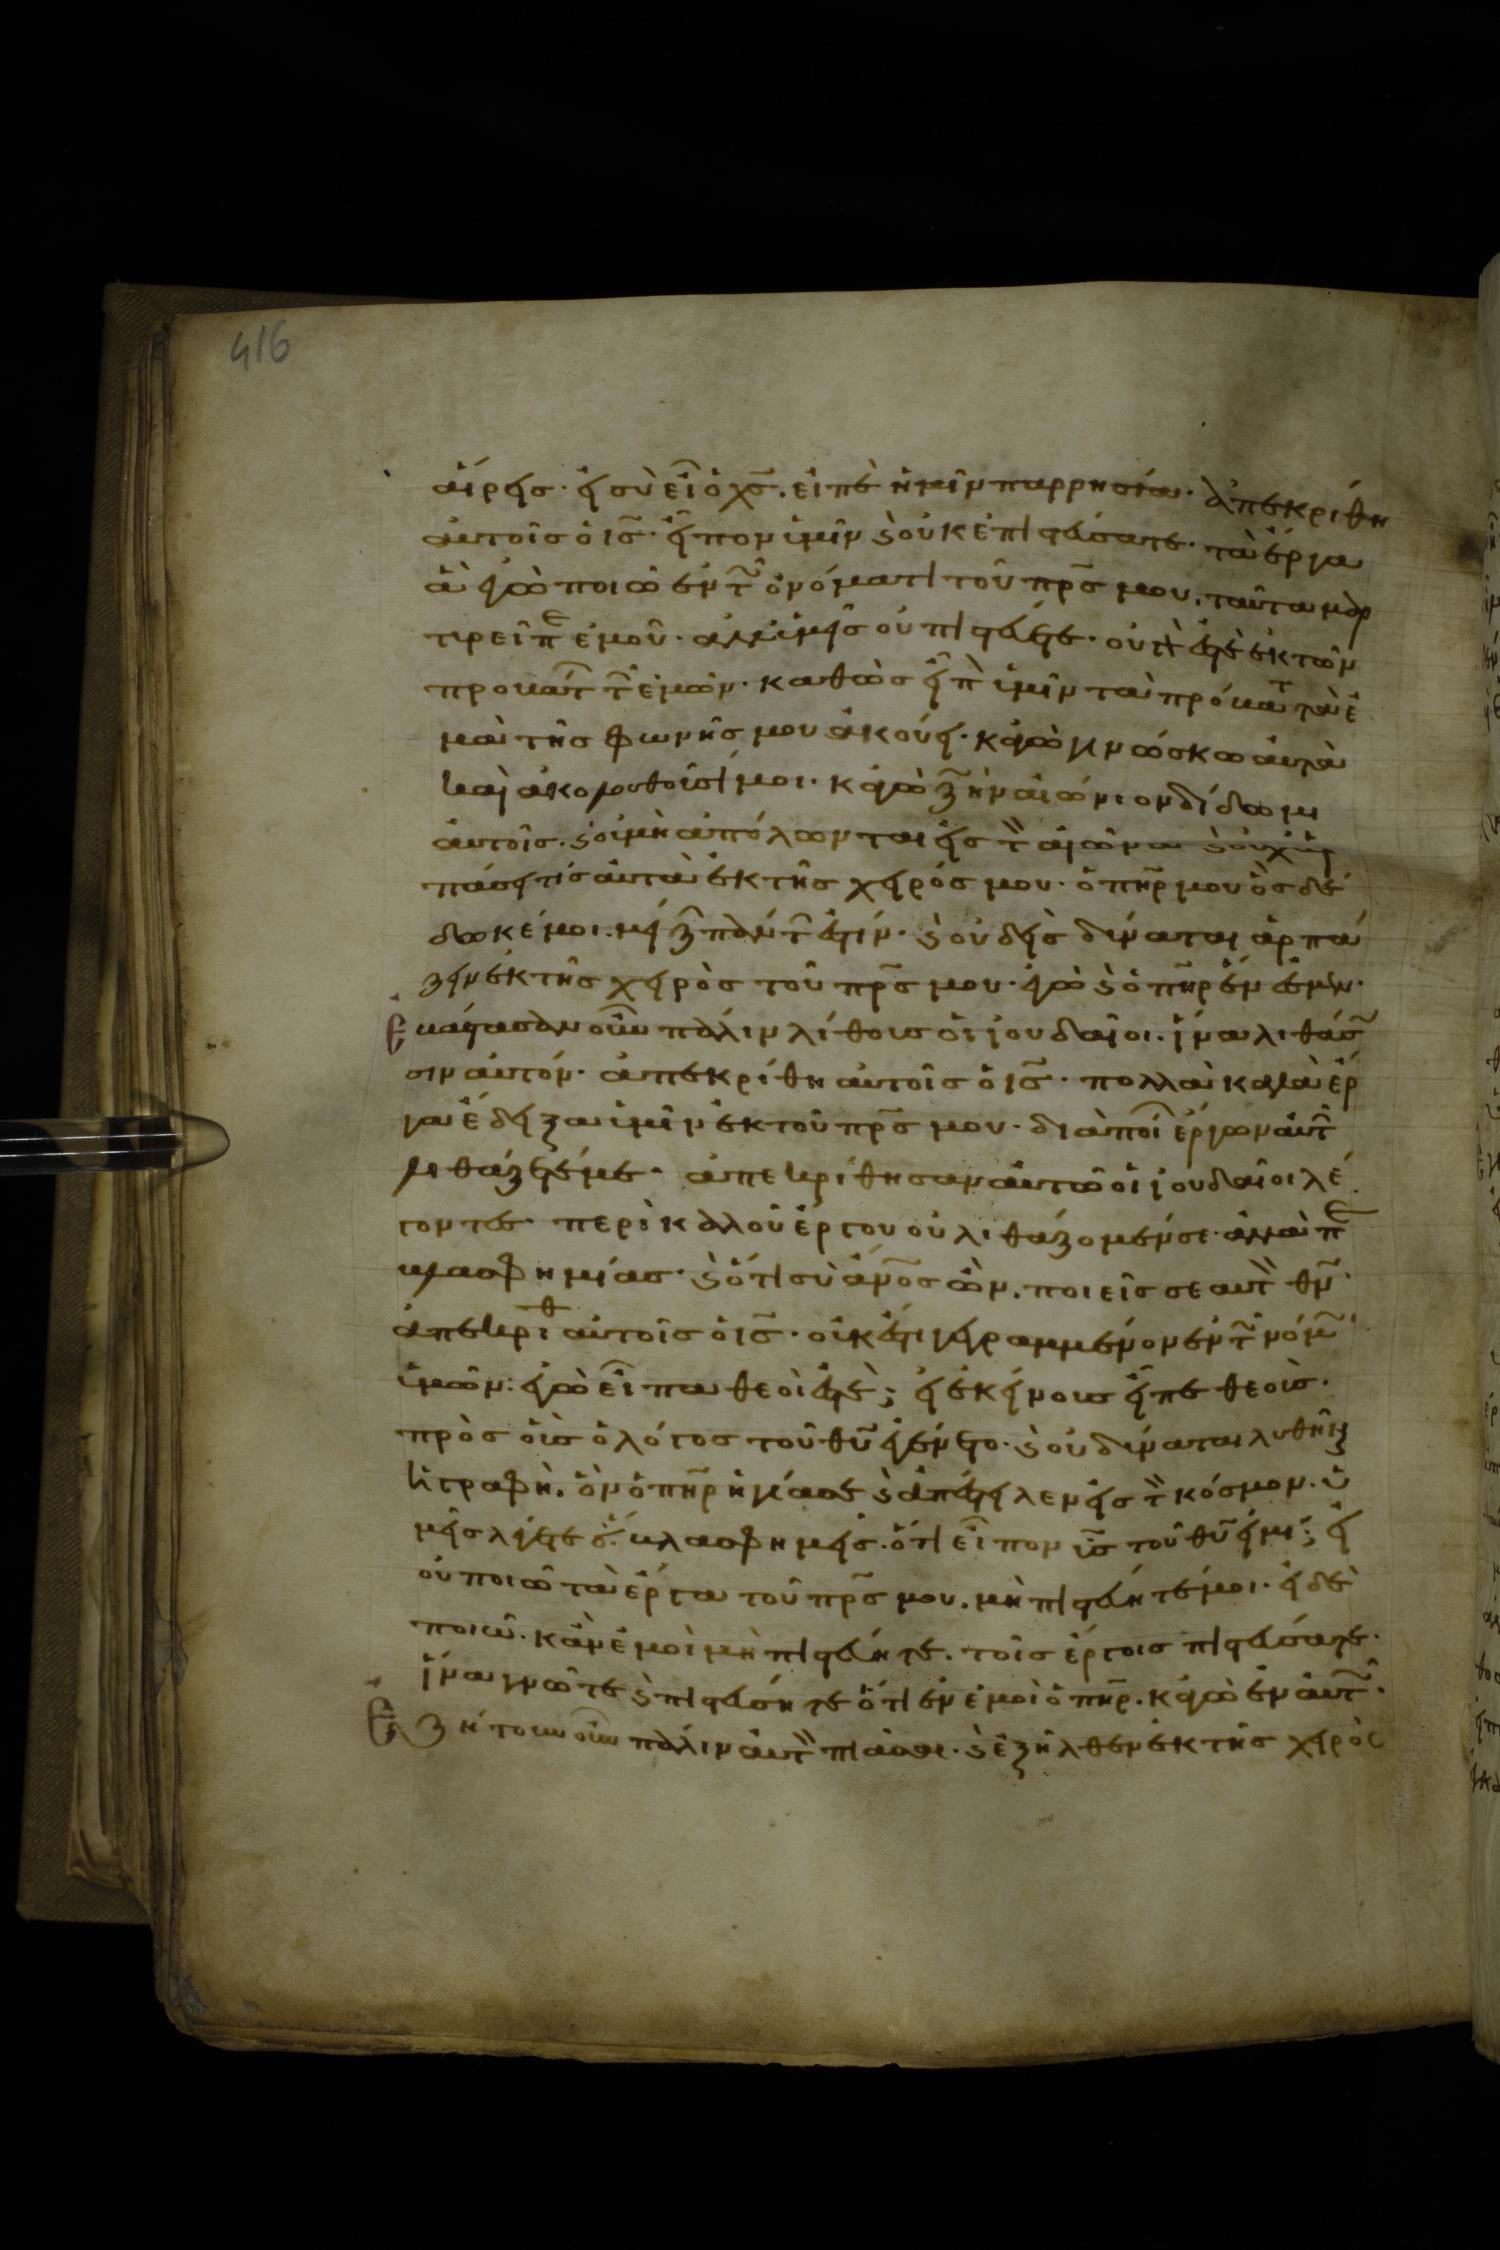 416
αἴρεις· εἰ σὺ εἶ ὁ χς̅. εἰπὲ ἡμῖν παρρησία· ἀπεκρίθη
αὐτοῖς ὁ ις̅· εἶπον ὑμῖν ϗ οὐκ ἐπιστεύσατε· τὰ ἔργα
ἃ ἐγὼ ποιῶ ἐν τ ὀνόματι τοῦ πρς̅ μου, ταῦτα μαρ
τυρεῖ π ἐμοῦ· ἀλλ' ὑμεῖς οὐ πιστεύετε· οὐ γὰρ ἐστὲ ἐκ τῶν
προβάτ τ ἐμῶν· καθὼς εἶπ ὑμῖν τὰ πρόβατ τὰ ἐ
μὰ τῆς φωνῆς μου ἀκούει· κἀγὼ γινώσκω αὐτὰ
καὶ ἀκολουθοῦσί μοι· κἀγὼ ζωὴν αἰώνιον δίδωμι
αὐτοῖς. ϗ οὐ μὴ ἀπόλωνται εἰς τ αἰῶνα ϗ οὐχ ἁρ
πάσει τίς αὐτὰ ἐκ τῆς χειρός μου· ὁ πηρ̅ μου ὃς δέ
δωκέ μοι. μείζ πάντ ἐστίν· ϗ οὐδεὶς δύναται ἁρπά
ζειν ἐκ τῆς χειρὸς τοῦ πρς̅ μου· ἐγὼ ϗ ὁ πηρ̅ ἕν ἐσμεν·
Ἐβάστασαν οὖν πάλιν λίθους οἱ ἰουδαῖοι. ἵνα λιθάσ
σιν αὐτόν· ἀπεκρίθη αὐτοῖς ὁ ις̅· πολλὰ καλὰ ἔρ
γα ἔδειξα ὑμῖν ἐκ τοῦ πρς̅ μου· διὰ ποῖ ἔργον αὐτ
λιθάζετέ με· ἀπεκρίθησαν αὐτῶ οἱ ἰουδαῖοι λέ
γοντες· περὶ καλοῦ ἔργου οὐ λιθάζομέν σε· ἀλλὰ π
βλασφημίας· ϗ ὅτι σὺ ἄνος̅ ὢν. ποιεῖς σεαυτ θν̅·
ἀπεκριθ αὐτοῖς ὁ ις̅· οὐκ ἔστι γεγραμμένον ἐν τ νόμ
ὑμῶν: ἐγὼ εἶπα θεοὶ ἐστὲ; εἰ ἐκείνους εἶπε θεοὺς.
πρὸς οὓς ὁ λόγος τοῦ θυ̅ ἐγένετο· ϗ οὐ δύναται λυθῆναι
ἡ γραφὴ. ὃν ὁ πηρ̅ ἡγίασε ϗ ἀπέστειλεν εἰς τ κόσμον. ὑ
μεῖς λέγετε ὅτι βλασφημεῖς. ὅτι εἶπον υς̅ τοῦ θυ̅ εἰμί; εἰ
οὐ ποιῶ τὰ ἔργα τοῦ πρς̅ μου. μὴ πιστεύητέ μοι· εἰ δὲ
ποιῶ. κἂν ἐμοὶ μὴ πιστεύητε. τοῖς ἔργοις πιστεύσατε·
ἵνα γνῶτε ϗ πιστεύσητε ὅτι ἐν ἐμοὶ ὁ πηρ̅. κἀγὼ ἐν αὐτ·
Ἐζήτουν οὖν πάλιν αὐτ πιάσαι· ϗ ἐξῆλθεν ἐκ τῆς χειρὸς